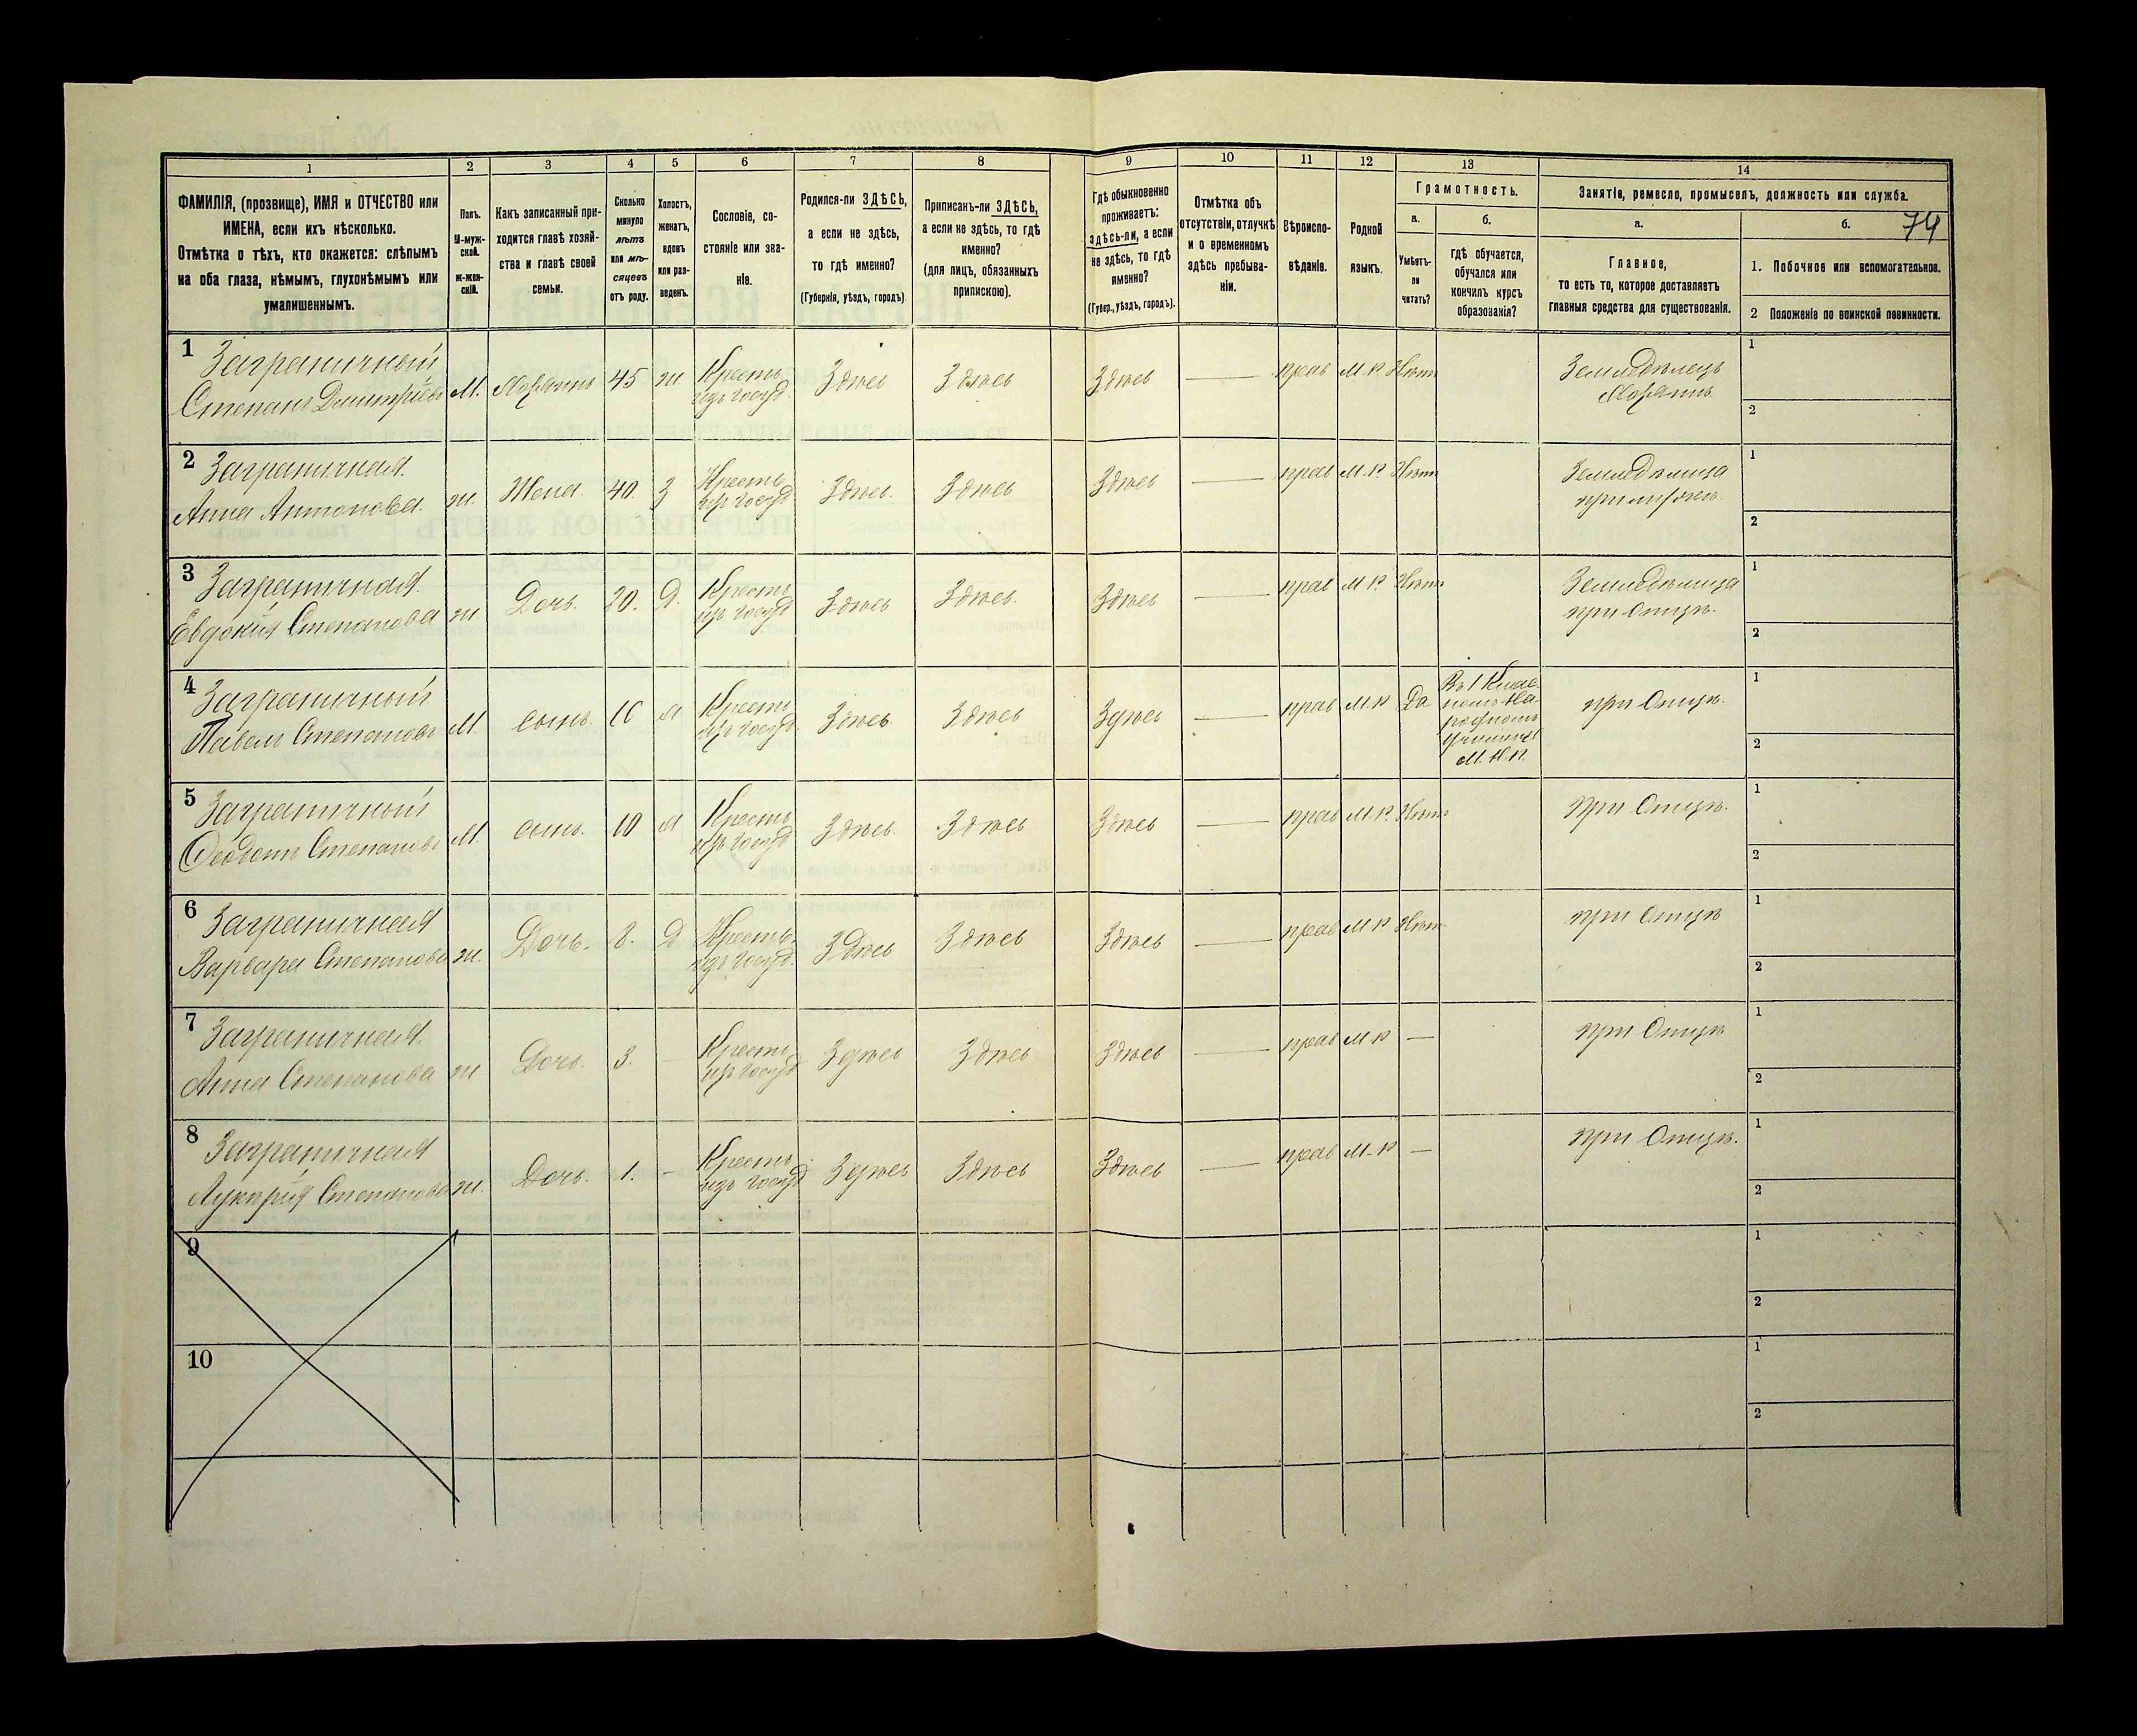 1 2 3 4 5 6 7 8 9 10 11 12 13 14
ФАМИЛІЯ, (прозвище), ИМЯ и ОТЧЕСТВО или
ИМЕНА, если ихъ нѣсколько.
Отмѣтка о тѣхъ, кто окажется: слѣпымъ
на оба глаза, нѣмымъ, глухонѣмымъ или
умалишеннымъ.
Полъ.
М-муж-
ской.
ж-жен-
скій.
Какъ записанный при-
ходится главѣ хозяй-
ства и главѣ своей
семьи.
Сколько
минуло
лѣтъ
или мѣ-
сяцевъ
отъ роду.
Холостъ,
женатъ,
вдовъ
или раз-
веденъ.
Сословіе, со-
стояніе или зва-
ніе.
Родился-ли ЗДѢСЬ,
а если не здѣсь,
то гдѣ именно?
(Губернія, уѣздъ, городъ)
Приписанъ-ли ЗДѢСЬ,
а если не здѣсь, то гдѣ
именно?
(для лицъ, обязанныхъ
припискою).
Гдѣ обыкновенно
проживаетъ:
здѣсь-ли, а если
не здѣсь, то гдѣ
именно?
(Губер., уѣздъ, городъ).
Отмѣтка объ
отсутствіи, отлучкѣ
и о временномъ
здѣсь пребыва-
ніи.
Вѣроиспо-
вѣданіе.
Родной
языкъ.
Грамотность.
а.
Умѣетъ-
ли
читать?
б.
Гдѣ обучается,
обучался или
кончилъ курсъ
образованія?
Занятіе, ремесло, промыселъ, должность или служба.
а.
Главное,
то есть то, которое доставляетъ
главныя средства для существованія.
б.
74
1. Побочное или вспомогательное.
2 Положеніе по воинской повинности.
1 Заграничный
Степанъ Дмитріевъ М. Хозяинъ 45 ж Крестья
изъ госуд. Здѣсь Здѣсь Здѣсь — прав М.Р. Нѣтъ Земледѣлецъ
Хозяинъ
1
2
2 Заграничная
Анна Антонова. ж. Жена. 40. З Крестья
изъ госуд Здѣсь. Здѣсь Здѣсь — прав М.Р. Нѣтъ Земледѣлица
при мужѣ.
1
2
3 Заграничная
Евдокія Степанова ж. Дочь. 20. Д. Крестья
изъ госуд Здѣсь Здѣсь. Здѣсь — прав М.Р. Нѣтъ Земледѣлица
при Отцѣ.
1
2
4 Заграничный
Павелъ Степановъ М. сынъ. Крестья
изъ госуд. Здѣсь Здѣсь Здѣсь — прав М.Р Да Въ 1 Клас
на-
родномъ
училищѣ
М.Н.П. при Отцѣ.
1
2
5 Заграничный
Степановъ М. сынъ. 10 Крестья
изъ госуд Здѣсь. Здѣсь Здѣсь — прав М.Р. Нѣтъ при Отцѣ.
1
2
6 Заграничная
Варвара Степанова ж. Дочь. 8. Д Крестья
изъ госуд. Здѣсь Здѣсь Здѣсь — прав М.Р. Нѣтъ при Отцѣ
1
2
7 Заграничная
Анна Степанова ж Дочь. 3. — Крестья
изъ госуд Здѣсь Здѣсь Здѣсь — прав М.Р — при Отцѣ
1
2
8 Заграничная
Лукерія Степанова ж. Дочь. 1. — Крестья
изъ госуд Здѣсь Здѣсь Здѣсь — прав М.Р — при Отцѣ.
1
2
9
1
2
10
1
2